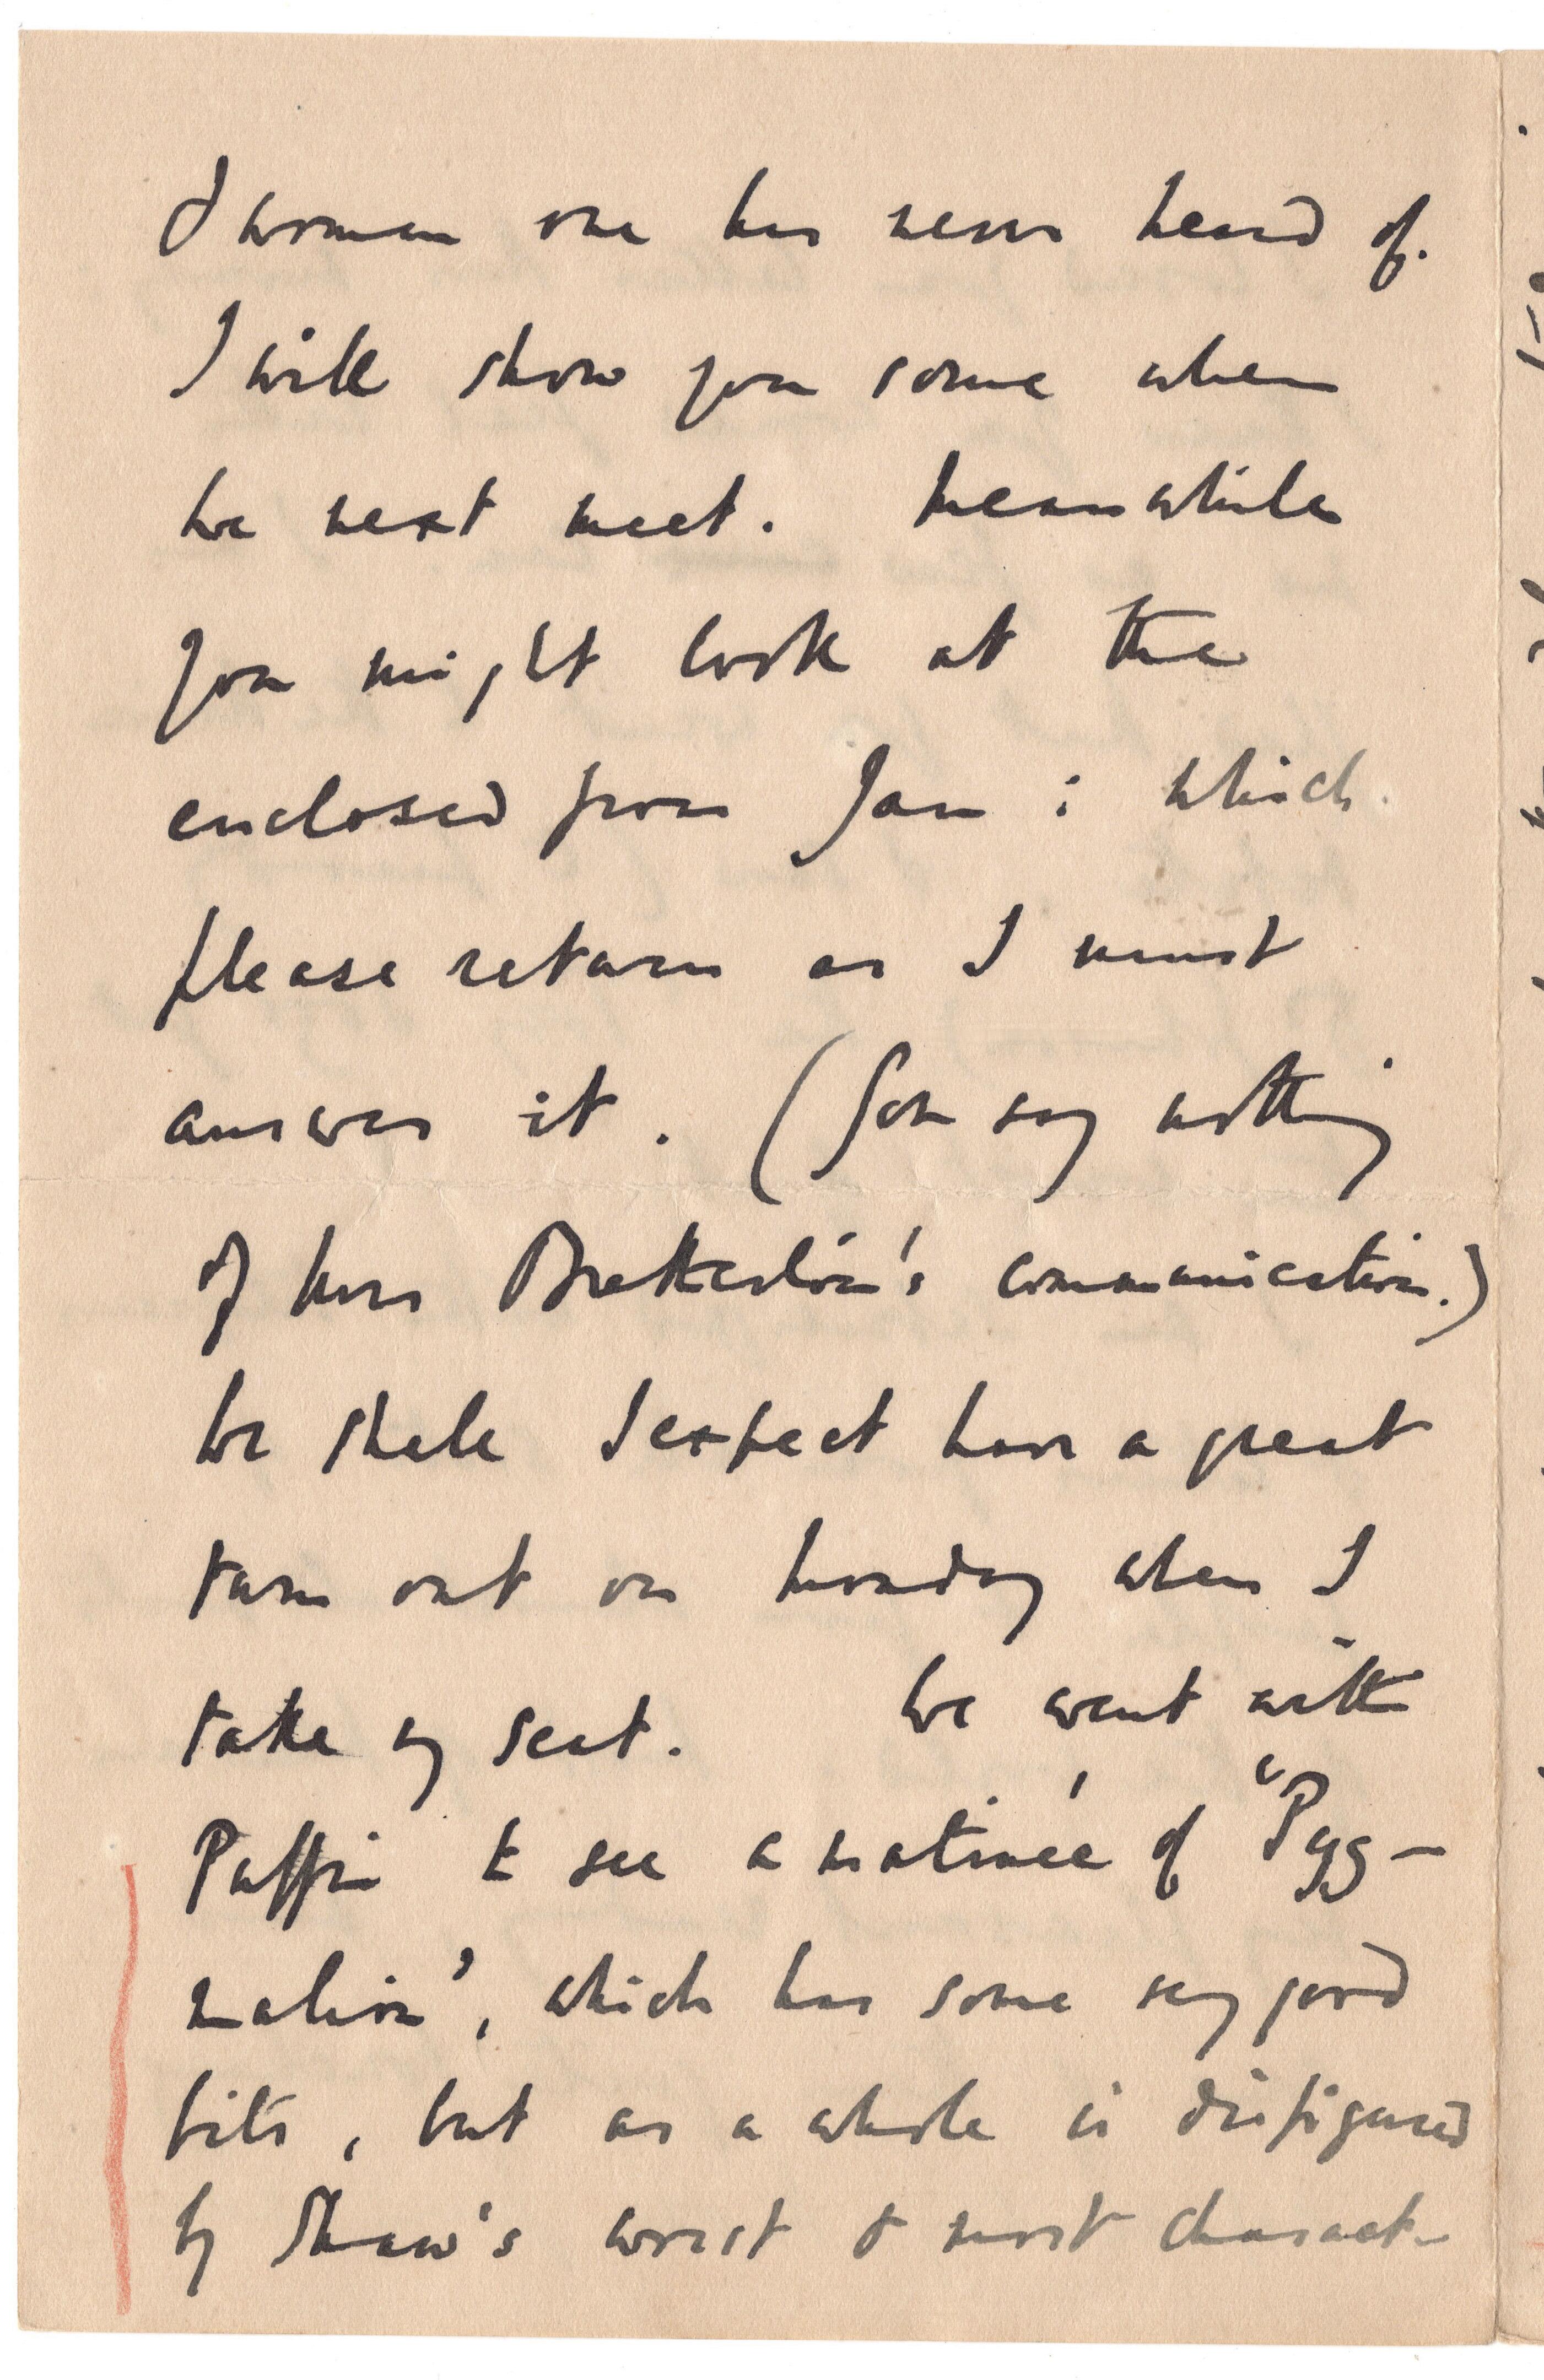 & women one has never heard of.
I will show you some when
we next meet. Meanwhile
you might look at the
enclosed from Jam : which
please return as I must
answer it. (You say nothing
of Mrs Bretherton's communication.)
We shall I expect have a great
turn out on Monday when I
take my seat. We went with
Puffin to see a matinée of "Pyg-
malion", which has some very good
bits, but as a whole is disfigured
by Shaw's worst & most charact-